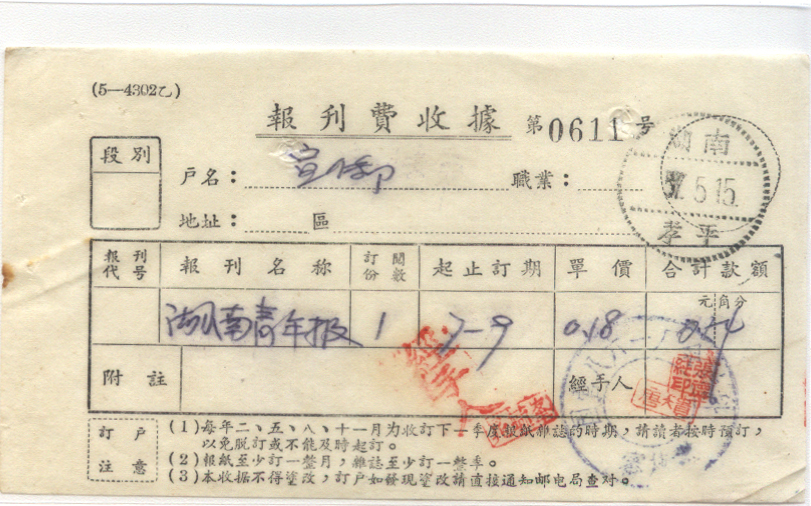 (5—4302乙)
報刊費收據 第0611号
段別
戶名：宣 職業：
地址： 區
報刊代号 報刊名称 訂閱份数 起止訂期 單價 合計款額
元角分
湖南青年报 1 7-9 0.18 0.54
附註 經手人
經手人
湖南
5.15.
訂戶注意
(1)每年二、五、八、十一月为收訂下一季度報紙雜誌的時期，請讀者按時預訂，
以免脫訂或不能及時起訂。
(2)報紙至少訂一整月，雜誌至少訂一整季。
(3)本收据不得塗改，訂戶如發現塗改請直接通知邮电局查对。